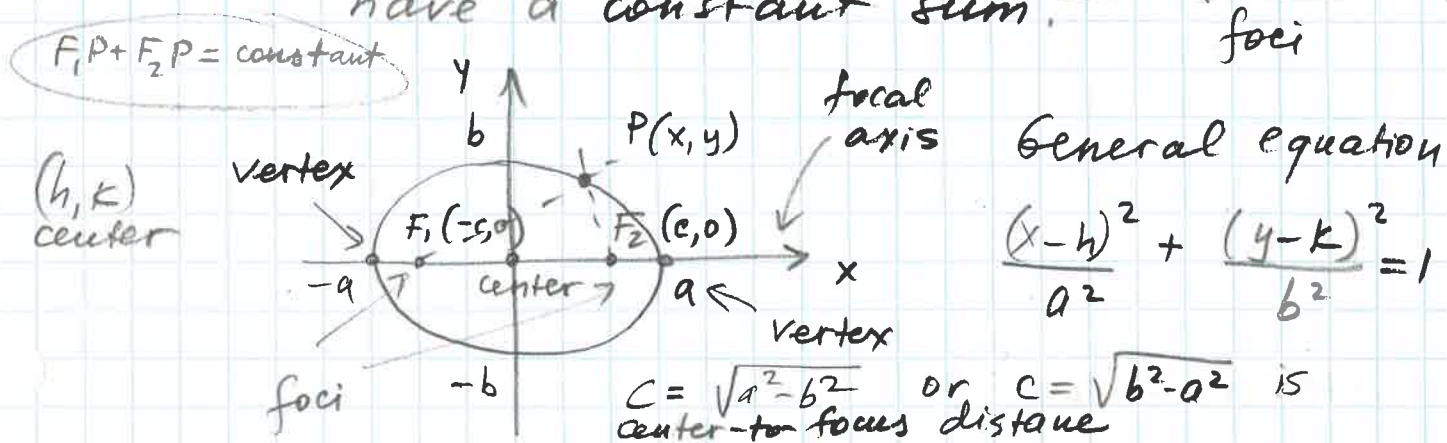 have a constant sum.
foci
F₁P + F₂P = constant
y
focal
axis
b
P(x, y)
General equation
vertex
(h, k)
center
F₁ (-c, 0)
F₂ (c, 0)
(x-h)²/a² + (y-k)²/b² = 1
-a
center
a
x
vertex
foci
-b
C = √a²-b² or c = √b²-a² is
center-to focus distane